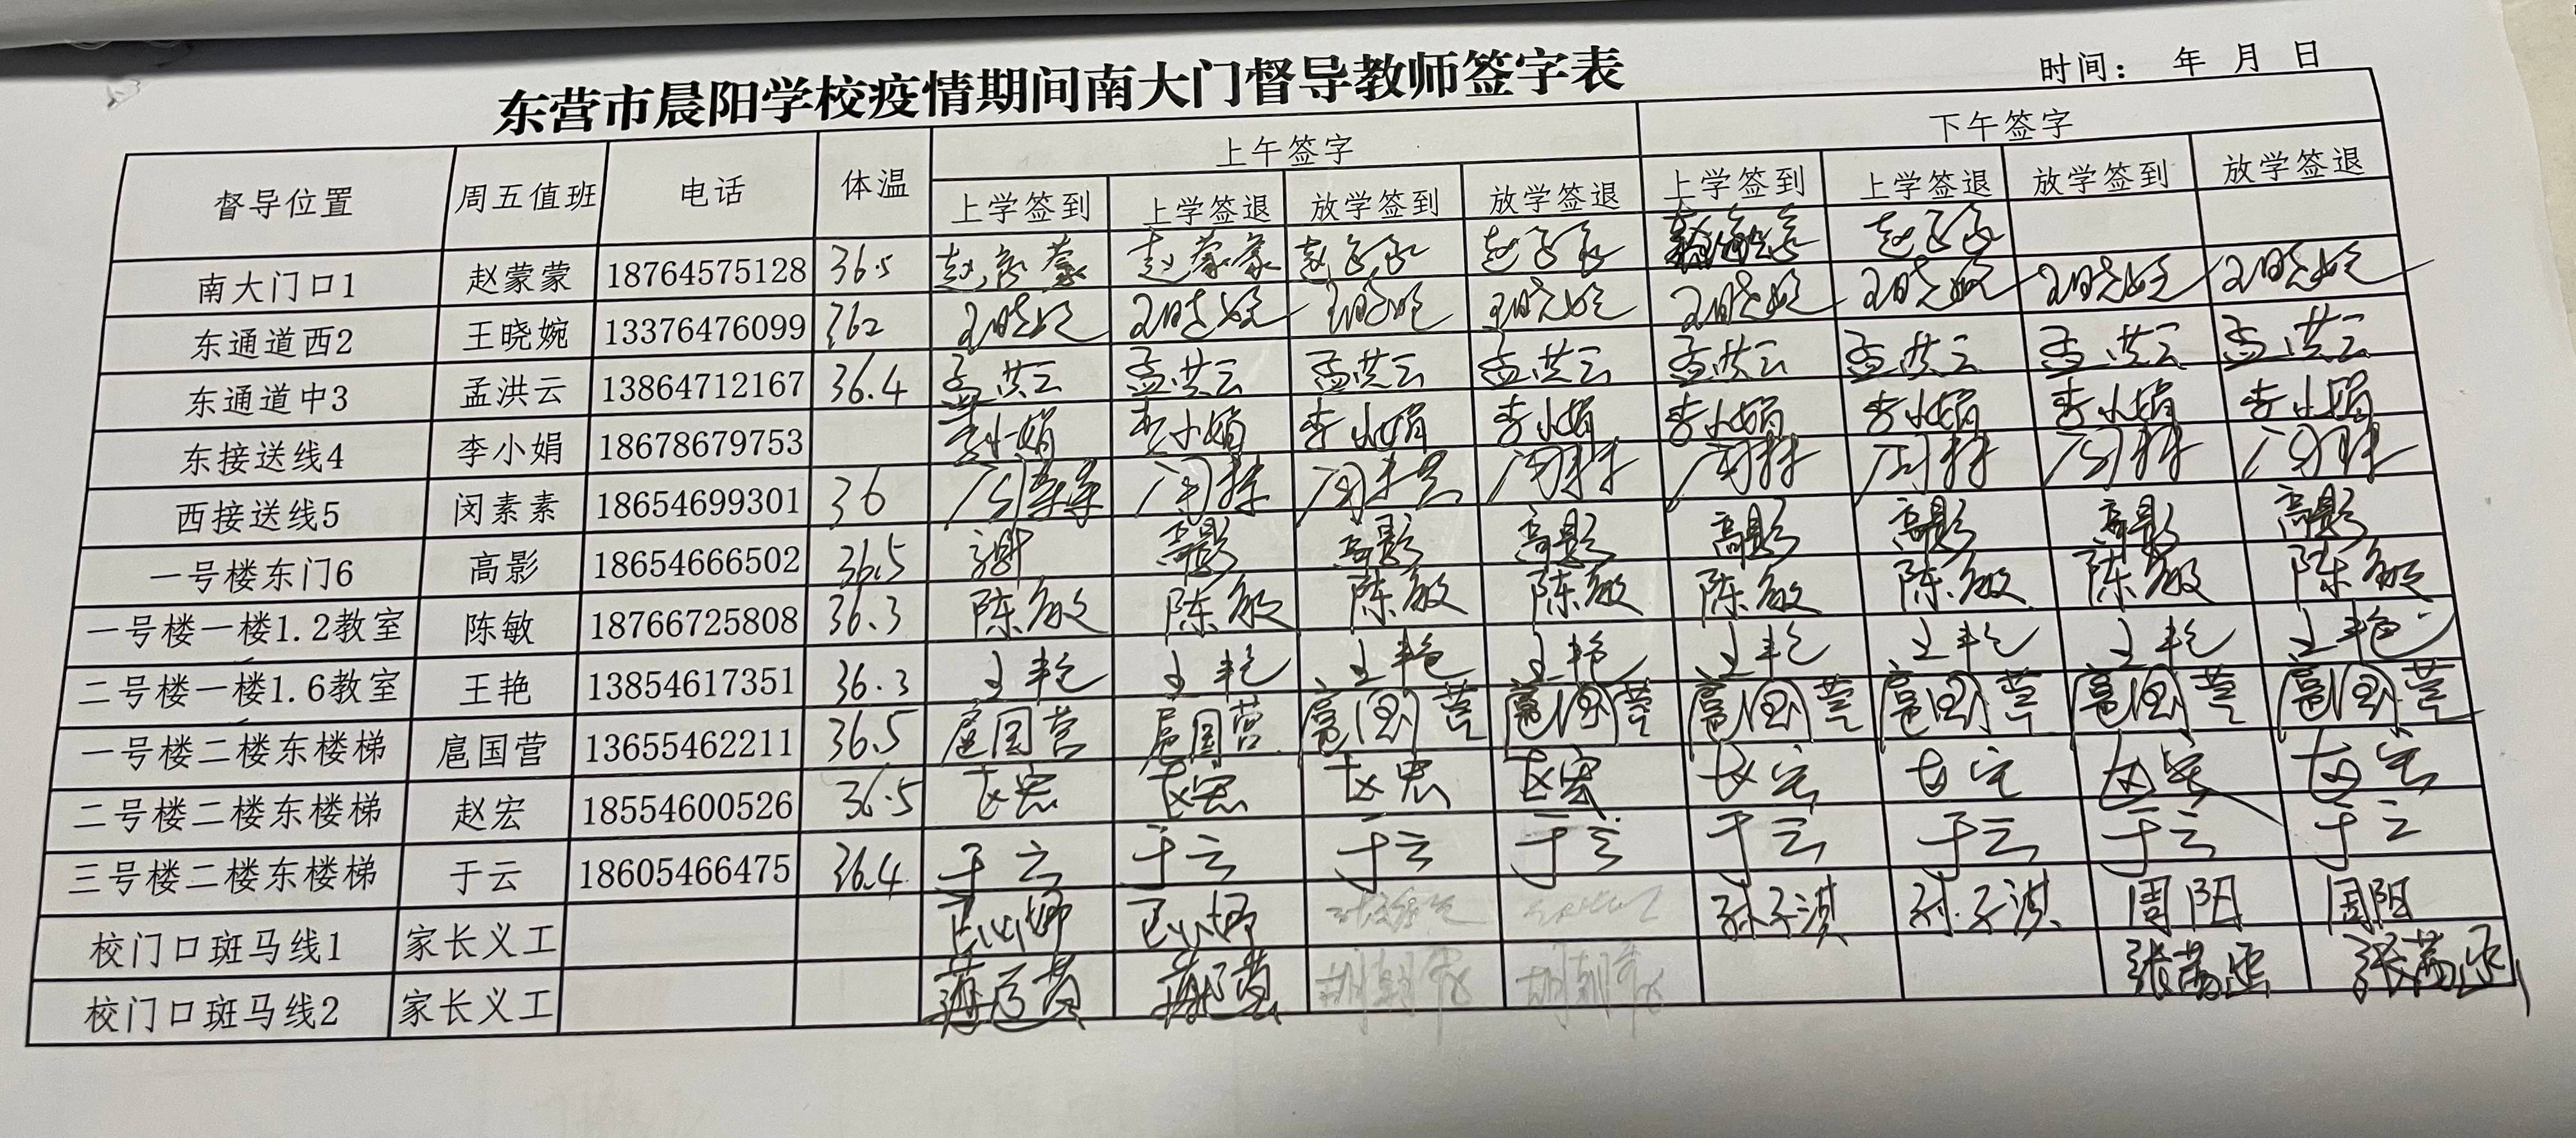 东营市晨阳学校疫情期间南大门督导教师签字表
时间： 年 月 日
督导位置 周五值班 电话 体温 上午签字 下午签字
上学签到 上学签退 放学签到 放学签退 上学签到 上学签退 放学签到 放学签退
南大门口1 赵蒙蒙 18764575128 36.5 赵蒙蒙 赵蒙蒙 赵蒙蒙 赵蒙蒙 赵蒙蒙
东通道西2 王晓婉 13376476099 362 王晓婉 王晓婉 王晓婉 王晓婉 王晓婉 王晓婉 王晓婉 王晓婉
东通道中3 孟洪云 13864712167 36.4 孟洪云 孟洪云 孟洪云 孟洪云 孟洪云 孟洪云 孟洪云 孟洪云
东接送线4 李小娟 18678679753 李小娟 李小娟 李小娟 李小娟 李小娟 李小娟 李小娟 李小娟
西接送线5 闵素素 18654699301 36
一号楼东门6 高影 18654666502 36.5 高影 高影 高影 高影 高影 高影 高影 高影
一号楼一楼1.2教室 陈敏 18766725808 36.3 陈敏 陈敏 陈敏 陈敏 陈敏 陈敏 陈敏 陈敏
二号楼一楼1.6教室 王艳 13854617351 36.3 王艳 王艳 王艳 王艳 王艳 王艳 王艳 王艳
一号楼二楼东楼梯 扈国营 13655462211 36.5 扈国营 扈国营 扈国营 扈国营 扈国营 扈国营 扈国营 扈国营
二号楼二楼东楼梯 赵宏 18554600526 36.5 赵宏 赵宏 赵宏 赵宏 赵宏 赵宏 赵宏 赵宏
三号楼二楼东楼梯 于云 18605466475 36.4 于云 于云 于云 于云 于云 于云 于云 于云
校门口斑马线1 家长义工 孙子淇 孙子淇 周阳 周阳
校门口斑马线2 家长义工